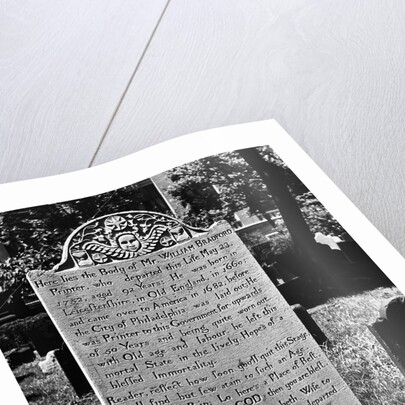 Here lies the Body of Mr. WILLIAM BRADFORD
Printer, who departed this Life May 23,
1752, aged Years: He was born in
Leicestershire, in Old England, in 1660:
and came over to America in 1682, before
the City of Philadelphia was laid out: He
was Printer to this Government for upwards
of 50 Years and being quite worn out
with Old age and labour, he left this
mortal State in the lively Hopes of a
blessed Immortality.
Reader, reflect how soon you'll quit this Stage
You'll find but few attain such an Age
Pain. Lo here's a Place of Rest,
GOD then you are blest
his Wife to
departed